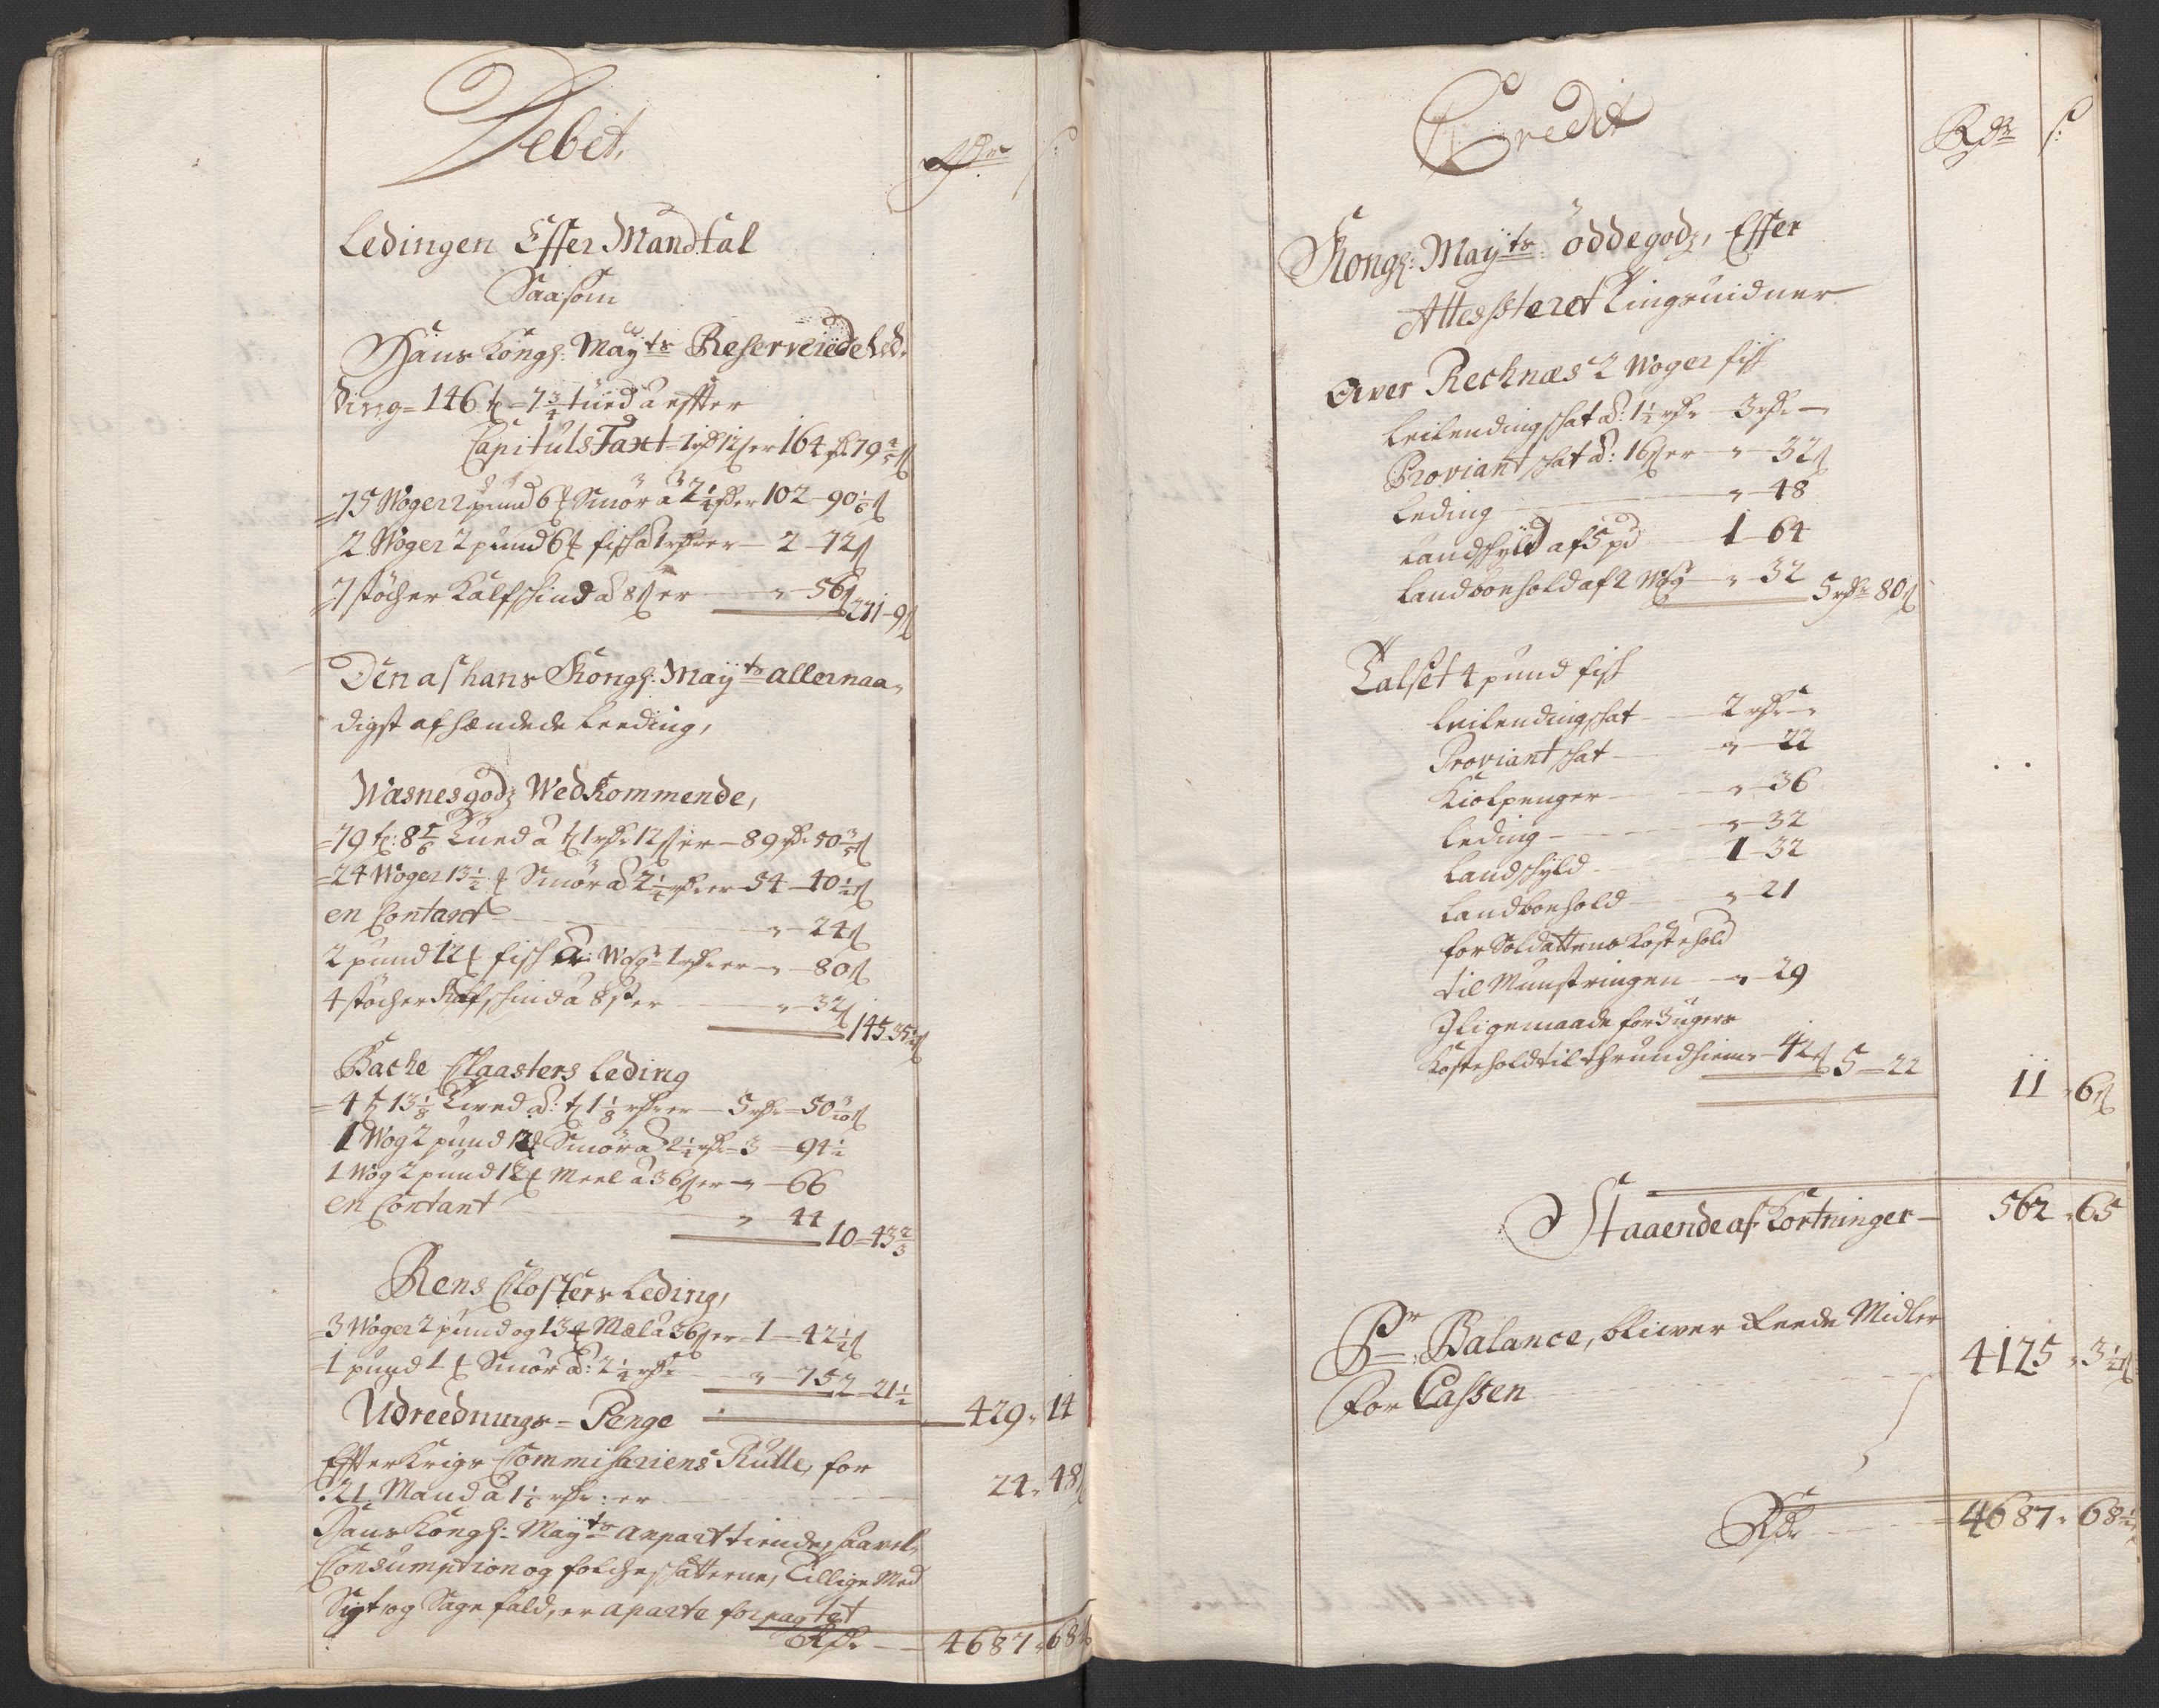 Debet,
Rdr ſ:
Ledingen Effter Mandtal
Saasom
Hans Kongl: Mayts Reserverede Led-
ding = 146 t = 7 3/4 tued a effter
Capituls Taxt 1 rdr 12 ſ er 164 rdr 79 2/5 ſ
=75 Woger 2 pund 6 t Smör a 2 1/4 rdr er 102 - 90 1/6 ſ
2 Woger 2 pund 6 t fisk a 1 rdr er - 2 - 72 ſ
=7 støcher Kalfskind a 8 ſ er " 56 ſ
271 - 9 ſ
Den af hans Kongl: Mayts allernaa-
digst afhændede Leeding,
Wæsnesgodz Wedkommende,
=79 t: 8 5/6 Tued a t 1 rdr 12 ſ er - 89 rdr 50 3/5 ſ
=24 Woger 13 1/2 t Smör a 2 1/4 rdr er 54 - 40 1/2 ſ
en Contant " - 24 ſ
2 pund 12 t fisk a: Wog 1 rdr er " - 80 ſ
4 støcher Kalfskind a 8 ſ er " - 32 ſ
145 - 35 1/2 ſ
Bache Claasters Leding
=4 t 13 1/8 Tued a: t 1 1/8 rdr er - 5 rdr = 50 3/10 ſ
1 Wog 2 pund 12 t Smör a 2 1/4 rdr = 3 = 94 1/2
1 Wog 2 pund 12 t Meel a 36 ſ er " - 66
en Contant " 44
10 - 43 2/3
Rens Closters Leding,
=3 Woger 2 pund og 13 t Mæl a 36 ſ er = 1 - 42 1/2 ſ
=1 pund 1 t Smör a: 2 1/4 rdr " - 75
2 - 21 1/2
Udreednings = Penge 429 " 14
Effter Krigs Commisariens Rulle, for
21 Mand a 1 1/6 rdr: er 24 " 48 ſ
Hans Kongl: Mayts anpart tiende, saavel
Consumption og folcheskatterne, Tillige Med
Sigt og Sagefald, er aparte forpagtet
Rdr - 4687 " 68 1/2
Credit
Rdr ſ:
Kongl: Mayts: öddegodz, Effter
Attessteret Tingsuidner
Over Rechnæs 2 Woger fisk
Leilendingskat a: 1 1/2 rdr - 3 rdr -
Proviantskat a: 16 ſ er - " - 32 ſ
Leding " - 48
Landskyld af 5 pd 1 - 64
Landboehold af 2 Wog - " - 32
5 rdr 80 ſ
Talset 4 pund fisk
Leilendingskat 2 rdr - "
Proviantskat " - 22
Kiolpenger " - 36
Leding " - 32
Landskyld 1 - 32
Landboehold " - 21
for Soldattens Kostehold
til Munstringen - " - 29
Jligemaade for 3 ugers
Kostehold til Thrundhiem - 42 ſ
5 - 22
11 " 6 ſ
Staaende afkortninger - 562 " 65
Pr: Balance, bliwer Reede Midler
for Cassen 4125 " 3 1/2 ſ
Rdr = 4687 " 68 1/2